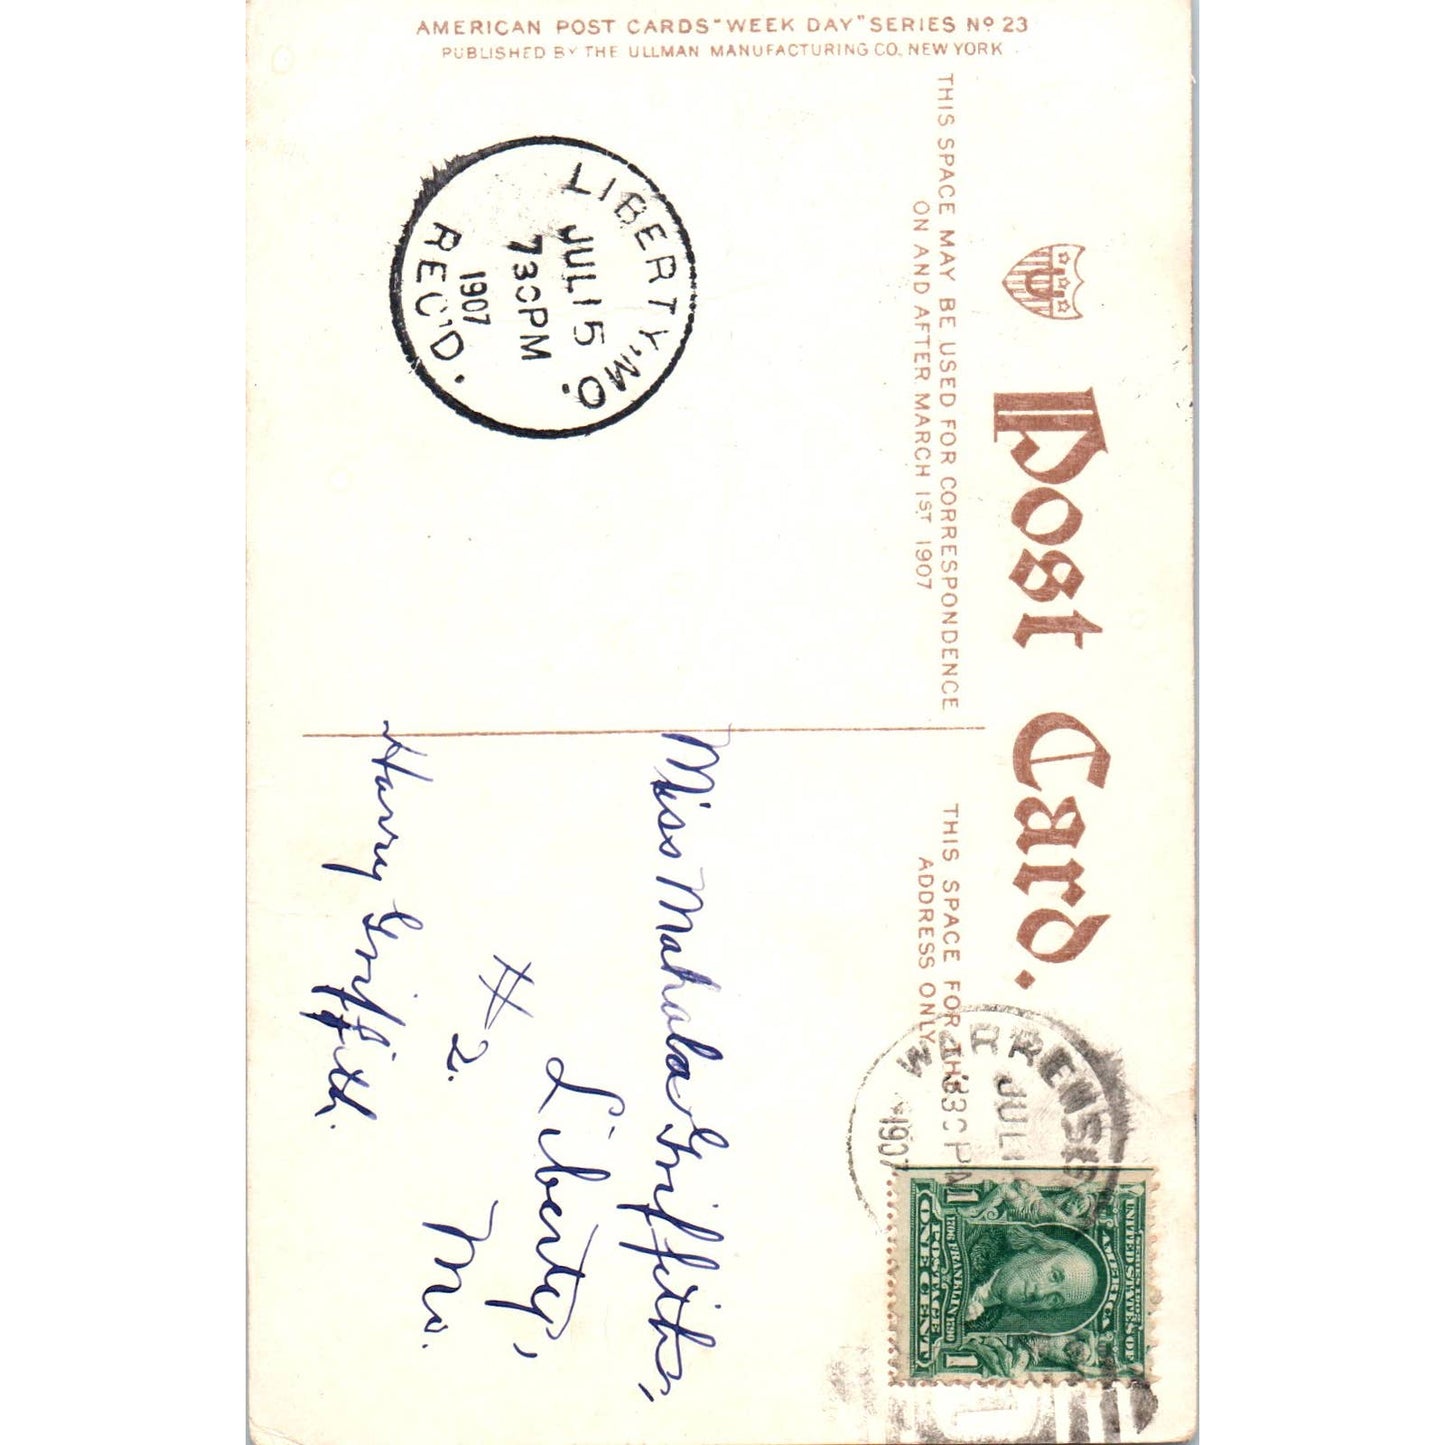 AMERICAN POST CARDS "WEEK DAY" SERIES No 23
PUBLISHED BY THE ULLMAN MANUFACTURING CO., NEW YORK
Post Card.
THIS SPACE MAY BE USED FOR CORRESPONDENCE
ON AND AFTER MARCH 1ST 1907
THIS SPACE FOR THE
ADDRESS ONLY
LIBERTY, MO.
JUL 15
730PM
1907
REC'D.
JUL
330PM
1907
UNITED STATES OF
AMERICA
1706 FRANKLIN 1790
POSTAGE
1 ONE CENT 1
Miss Mahala Griffith,
Liberty,
Mo.
# 2.
Harry Griffith.